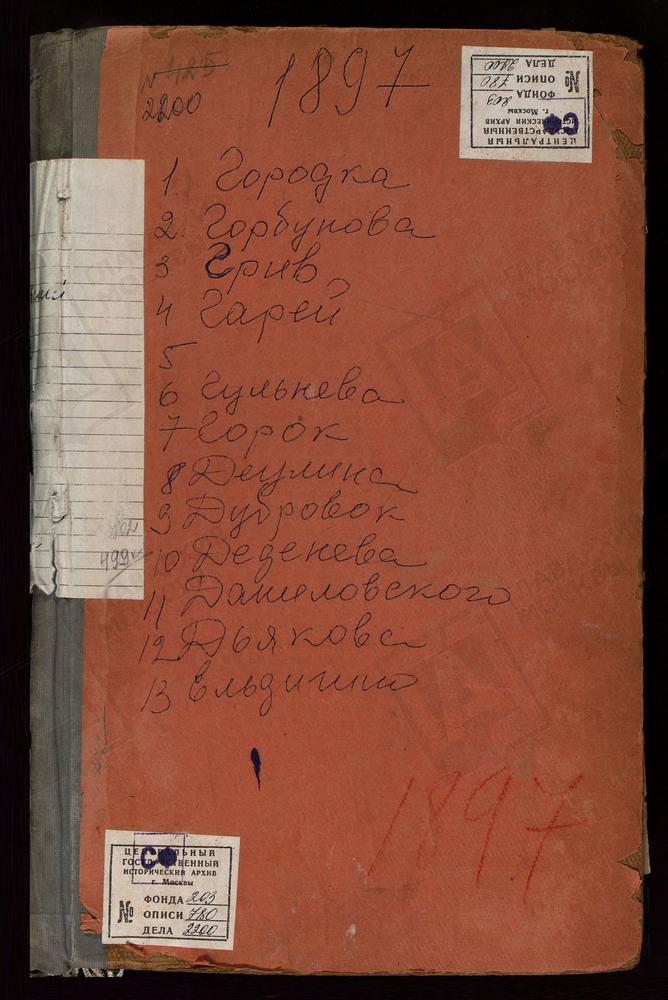 № 425
2200
1897
ЦЕНТРАЛЬНЫЙ
ГОСУДАРСТВЕННЫЙ
ИСТОРИЧЕСКИЙ АРХИВ
г. Москвы
СФ
№
ФОНДА 203
ОПИСИ 780
ДЕЛА 2200
1. Городка
2. Горбунова
3 Грив
4 Гарей
5
6 Гульнева
7 Горок
8 Деулина
9 Дубровок
10 Деденева
11 Даниловского
12 Дьякова
13 Ельдигино
499
1897
ЦЕНТРАЛЬНЫЙ
ГОСУДАРСТВЕННЫЙ
ИСТОРИЧЕСКИЙ АРХИВ
г. Москвы
СФ
№
ФОНДА 203
ОПИСИ 780
ДЕЛА 2200